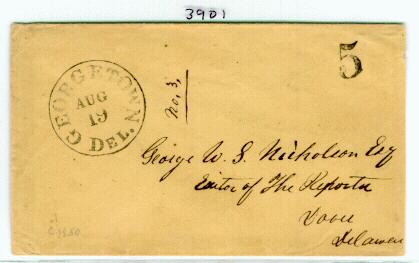 3901
5
GEORGETOWN DEL.
AUG
19
No. 3,
George W. S. Nicholson Esq
Editor of The Reporter
Dover
Delaware